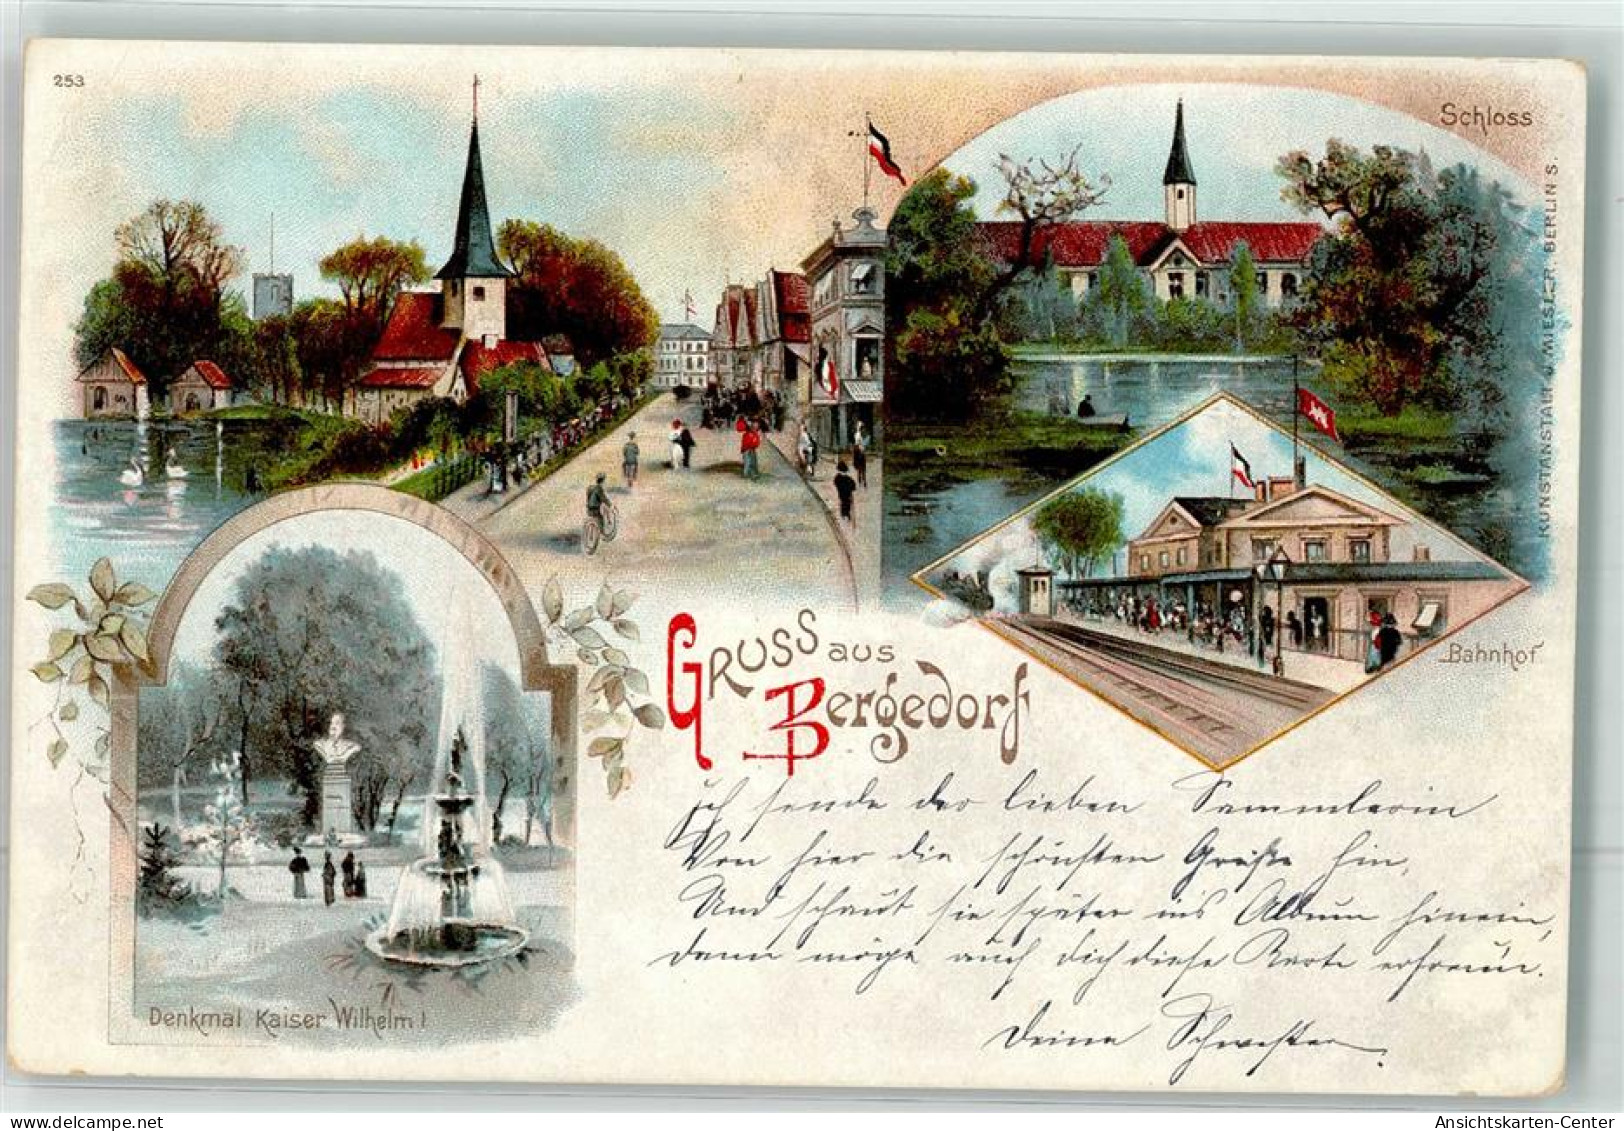 253
Schloss
KUNSTANSTALT J. MIESLER, BERLIN S.
Bahnhof
Gruss aus
Bergedorf
Denkmal Kaiser Wilhelm I
Ich sende der lieben Sammlerin
Von hier die schönsten Grüße hin,
Und schaut sie später ins Album hinein,
dann möge auch dich diese Karte erfreun.
Deine Schwester.
Ansichtskarten-Center